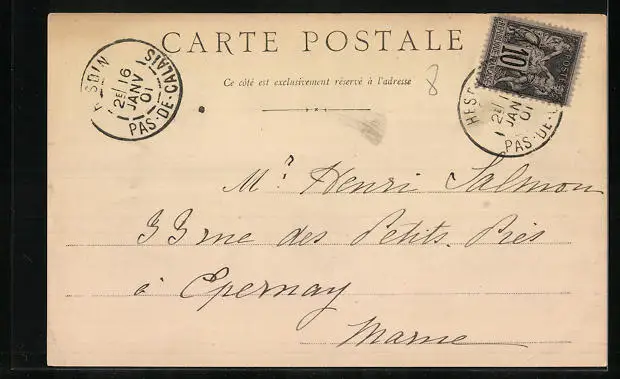 CARTE POSTALE
Ce côté est exclusivement réservé à l'adresse
8
HESDIN
2E/16
JANV
01
PAS-DE-CALAIS
10
HESD
2E/1
JANV
01
PAS-DE-C
Mr. Henri Salmon
33 rue des Petits. Prés
à Epernay
Marne